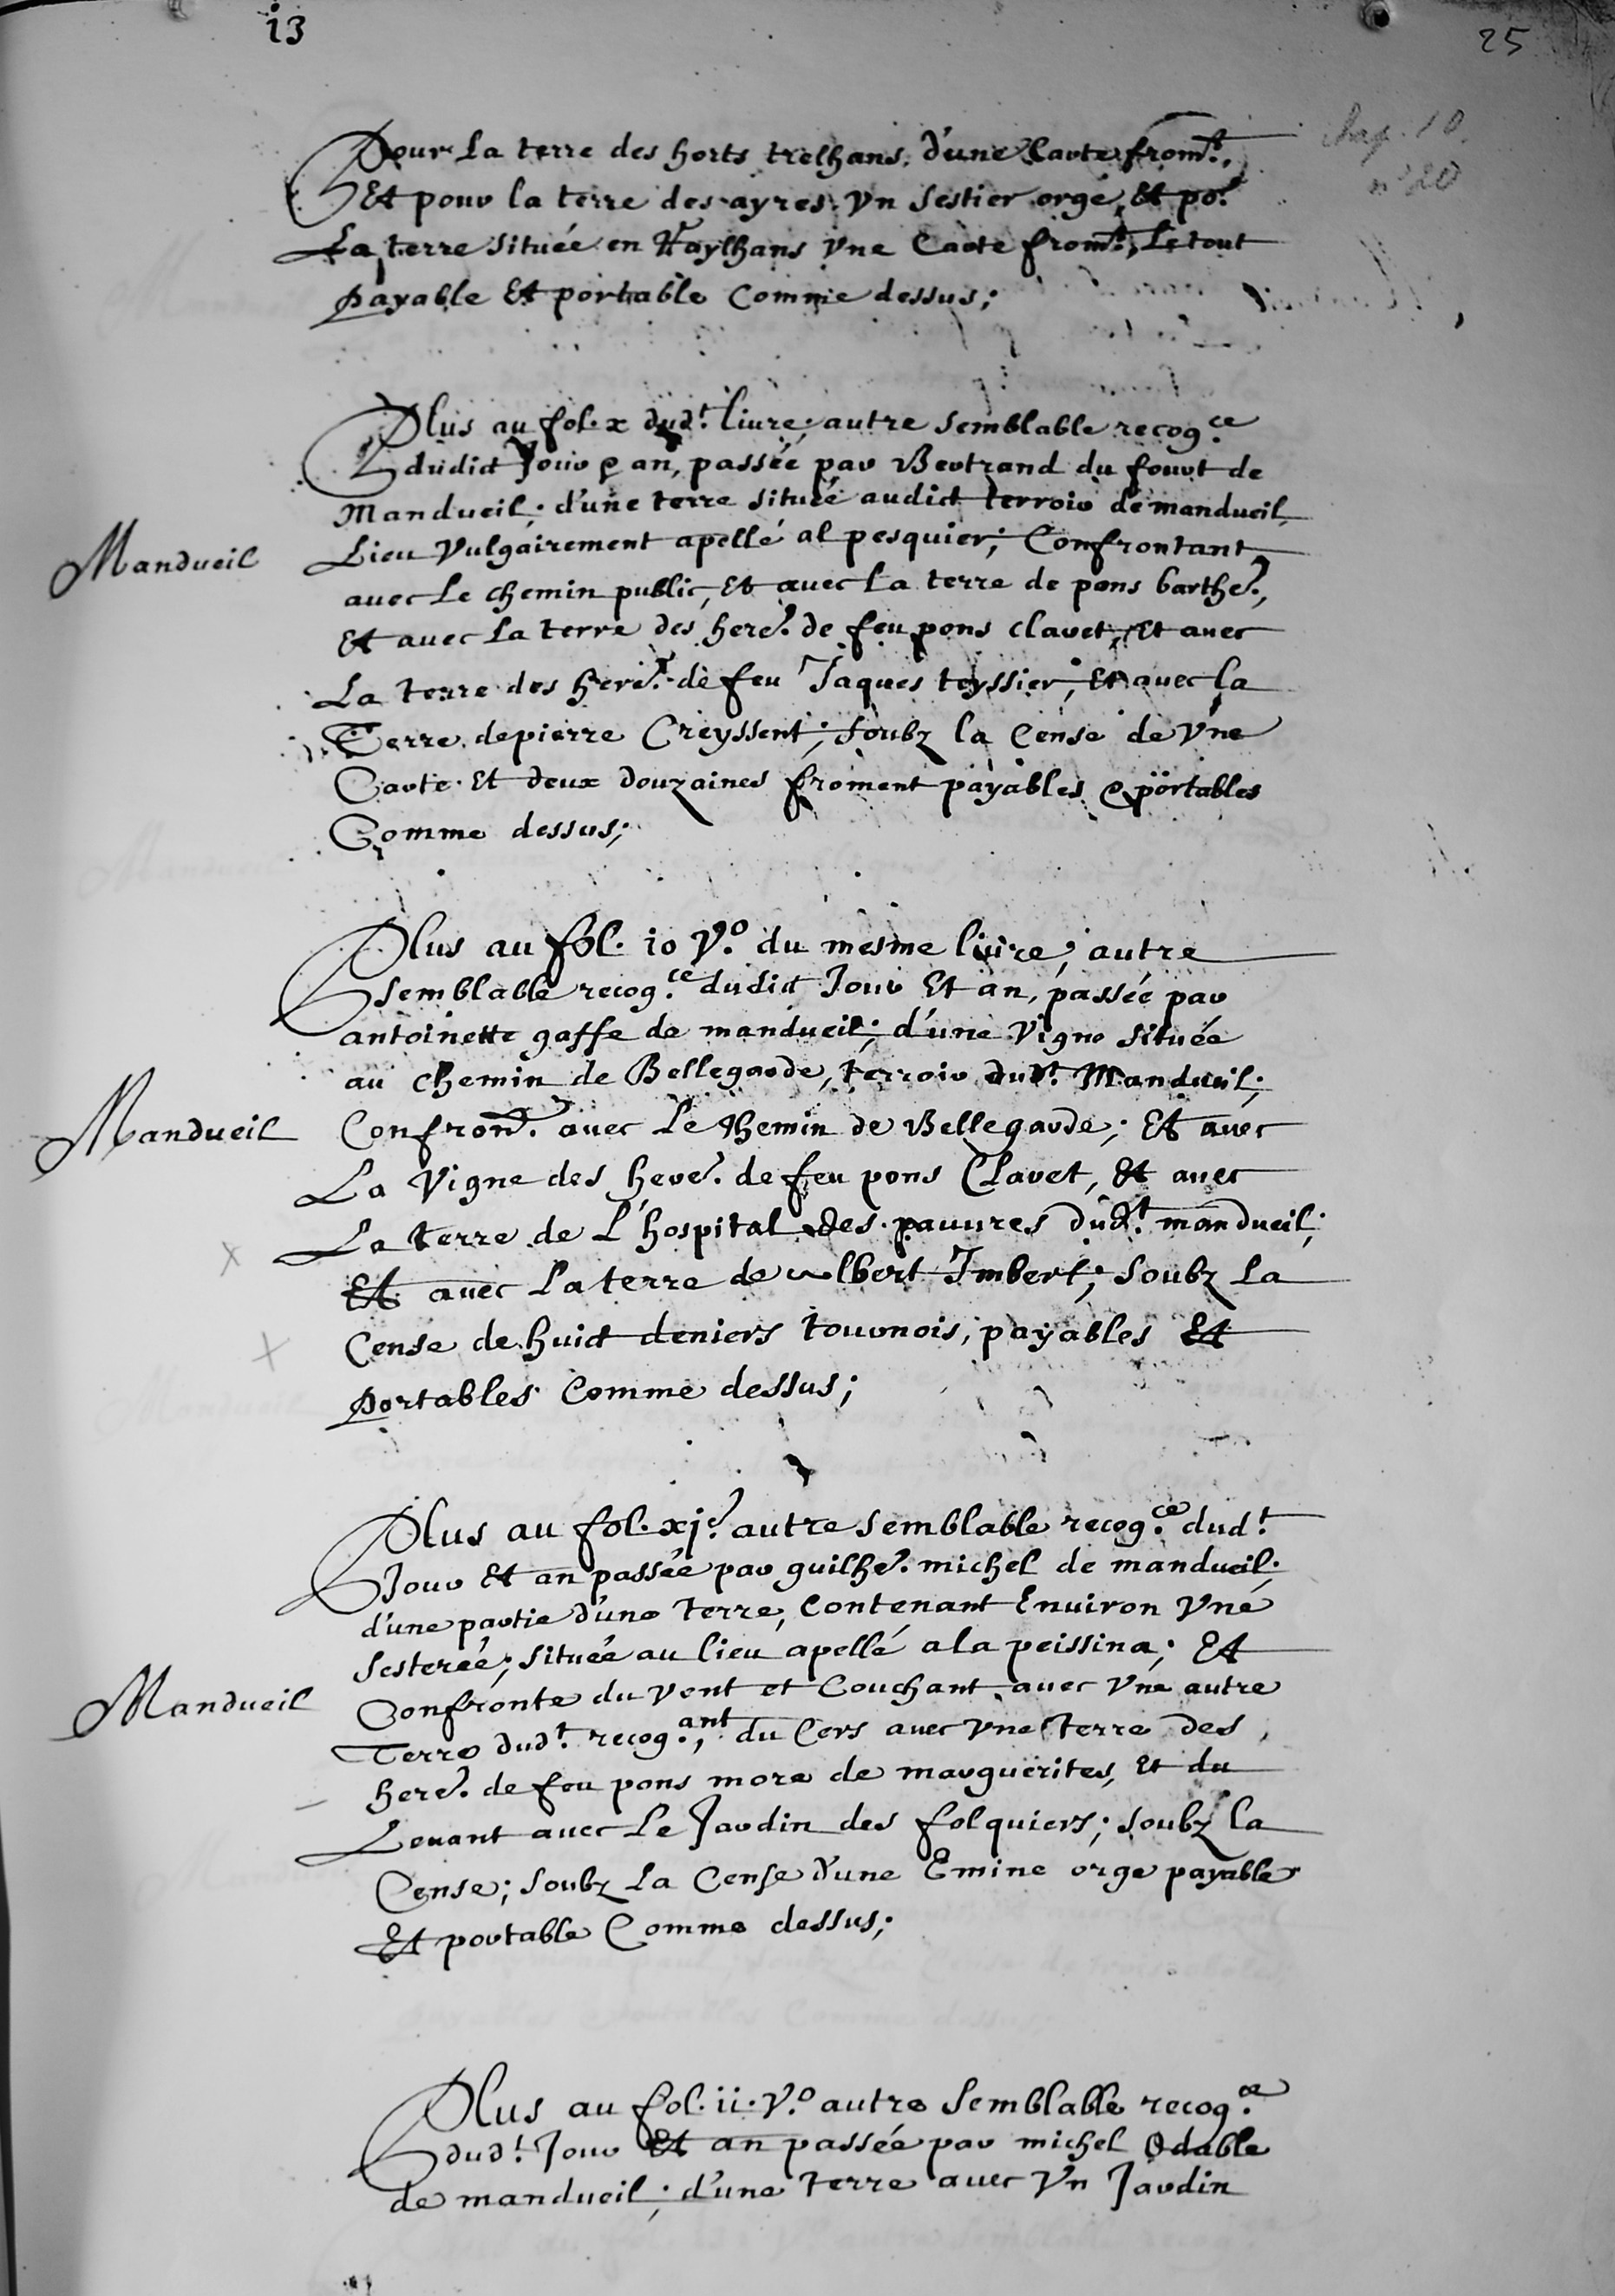 i3
25
chap. 10.
n° 20
Pour La terre des horts trelhans, d'une Carte from.t,
Et pour la terre des ayres, Vn Sestier orge, Et po.r
La terre Située en Traylhans Vne Carte from.t, Le tout
payable Et portable Comme dessus;
Plus au fol. x dud.t liure, autre Semblable recog.ce
dudict Jour & an, passée par Bertrand du fourt de
Mandueil; d'une terre située audict terroir de mandueil,
Lieu Vulgairement apellé al pesquier; Confrontant
Mandueil
auec Le chemin public, Et auec La terre de pons barthe.,
Et auec La terre des here.s de feu pons clauet, Et auec
La terre des here.s de feu Jaques teyssier, Et auec la
Terre de pierre Creyssent; soubz la Cense de Vne
Carte Et deux douzaines froment payables & portables
Comme dessus;
Plus au fol. io V.o du mesme liure, autre
Semblable recog.ce dudict Jour Et an, passée par
antoinette gaffe de mandueil; d'une Vigne Située
au chemin de Bellegarde, terroir dud.t Mandueil;
Mandueil
Confron.t auec Le Chemin de Bellegarde; Et auec
La Vigne des here.s de feu pons Clauet, Et auec
La terre de L'hospital des pauures dud.t mandueil;
Et auec La terre de albert Imbert; Soubz La
Cense de huict deniers tournois, payables Et
portables Comme dessus;
Plus au fol. xj.e autre Semblable recog.ce dud.t
Jour Et an passée par guilhe. michel de mandueil;
d'une partie d'une terre, Contenant Enuiron Vne
Sesterée; située au lieu apellé a la peissina; Et
Mandueil
Confronte du Vent et Couchant auec Vne autre
Terre dud.t recog.ant, du Cers auec Vne Terre des
here.s de feu pons more de marguerites, Et du
Leuant auec Le Jardin des folquiers; soubz la
Cense; Soubz La Cense d'une Emine orge payable
Et portable Comme dessus;
Plus au fol. ii. V.o autre Semblable recog.ce
dud.t Jour Et an passée par michel Odable
de mandueil; d'une terre auec Vn Jardin